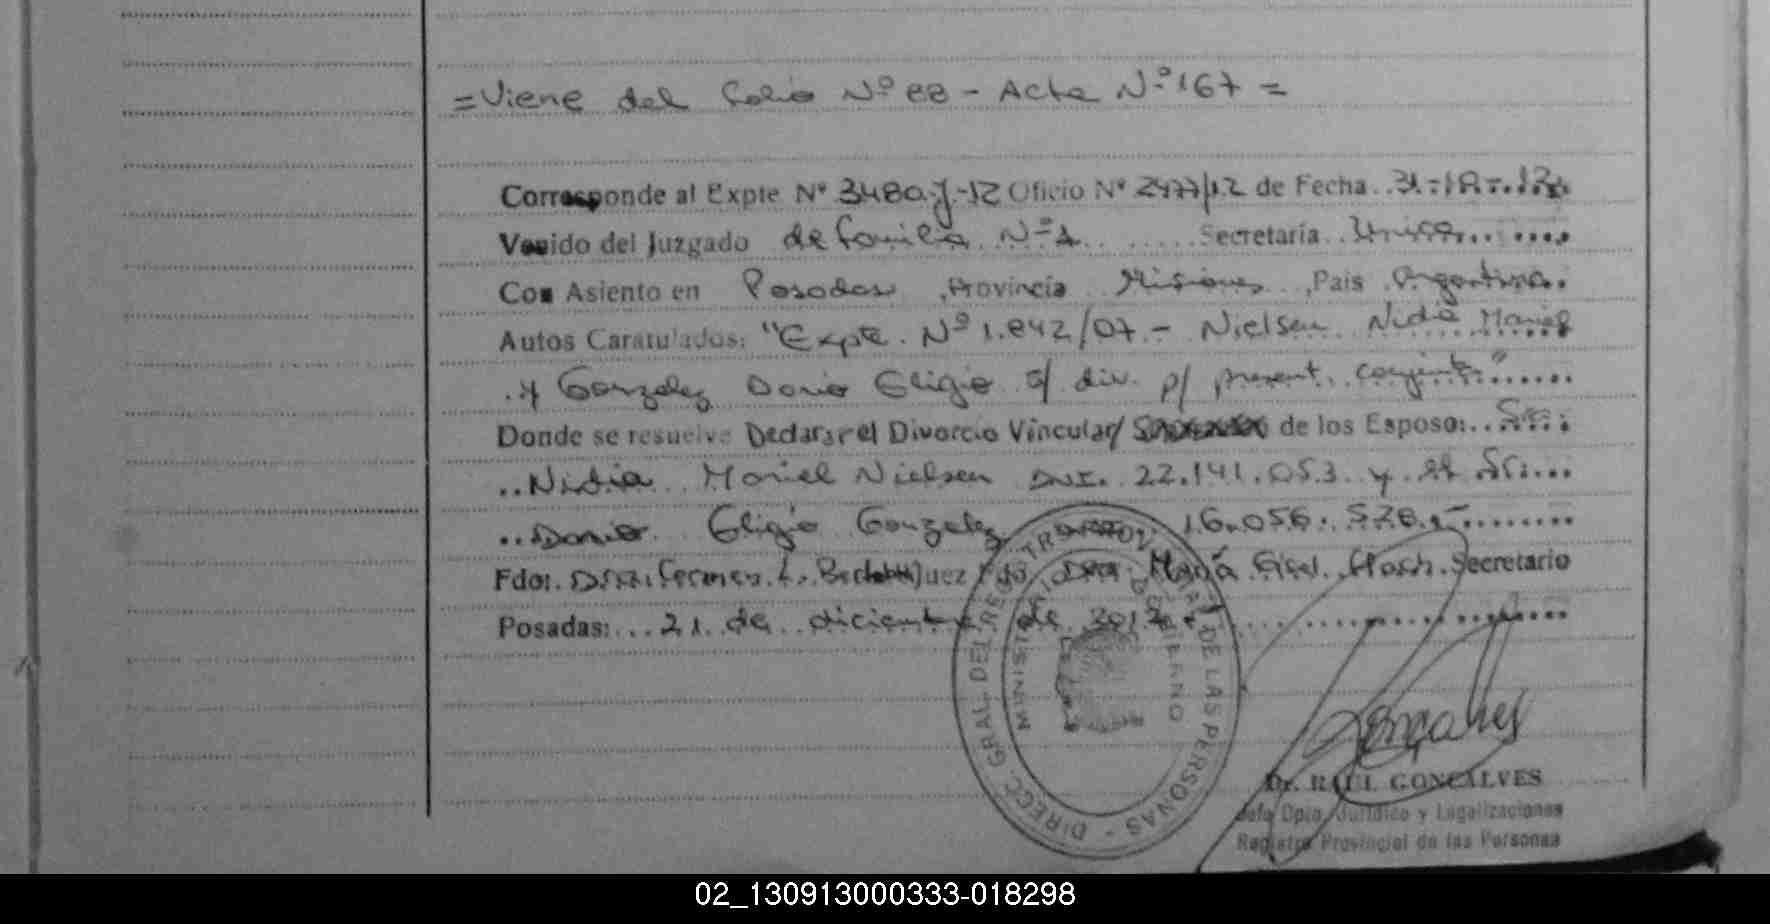 =Viene del folio Nº 88 - Acta Nº 167 =
Corresponde al Expte Nº 3480-J-12 Oficio Nº 2477/12 de Fecha
Venido del Juzgado de familia Nº 1 Secretaría Unica
Con Asiento en Posadas, Provincia Misiones, País Argentina.
Autos Caratulados: "Expte. Nº 1.842/07.- Nielsen Nidia Mariel
y Gonzalez Dario Eligio s/ div. p/ present. conjunta"
Donde se resuelve Declarar el Divorcio Vincular/ de los Esposo: Sra.
Nidia Mariel Nielsen DNI. 22.141.053 y el Sr.
Dario Eligio Gonzalez 16.056.
Fdo: Dra. Juez Fdo. Dra. María Secretario
Posadas: 21 de diciembre de 2012.-
DIRECC. GRAL. DEL REG. TRO PROV. DE LAS PERSONAS
MINISTERIO DE GOBIERNO
Dr. RAUL GONCALVES
Jefe Dpto. Jurídico y Legalizaciones
Registro Provincial de las Personas
02_130913000333-018298